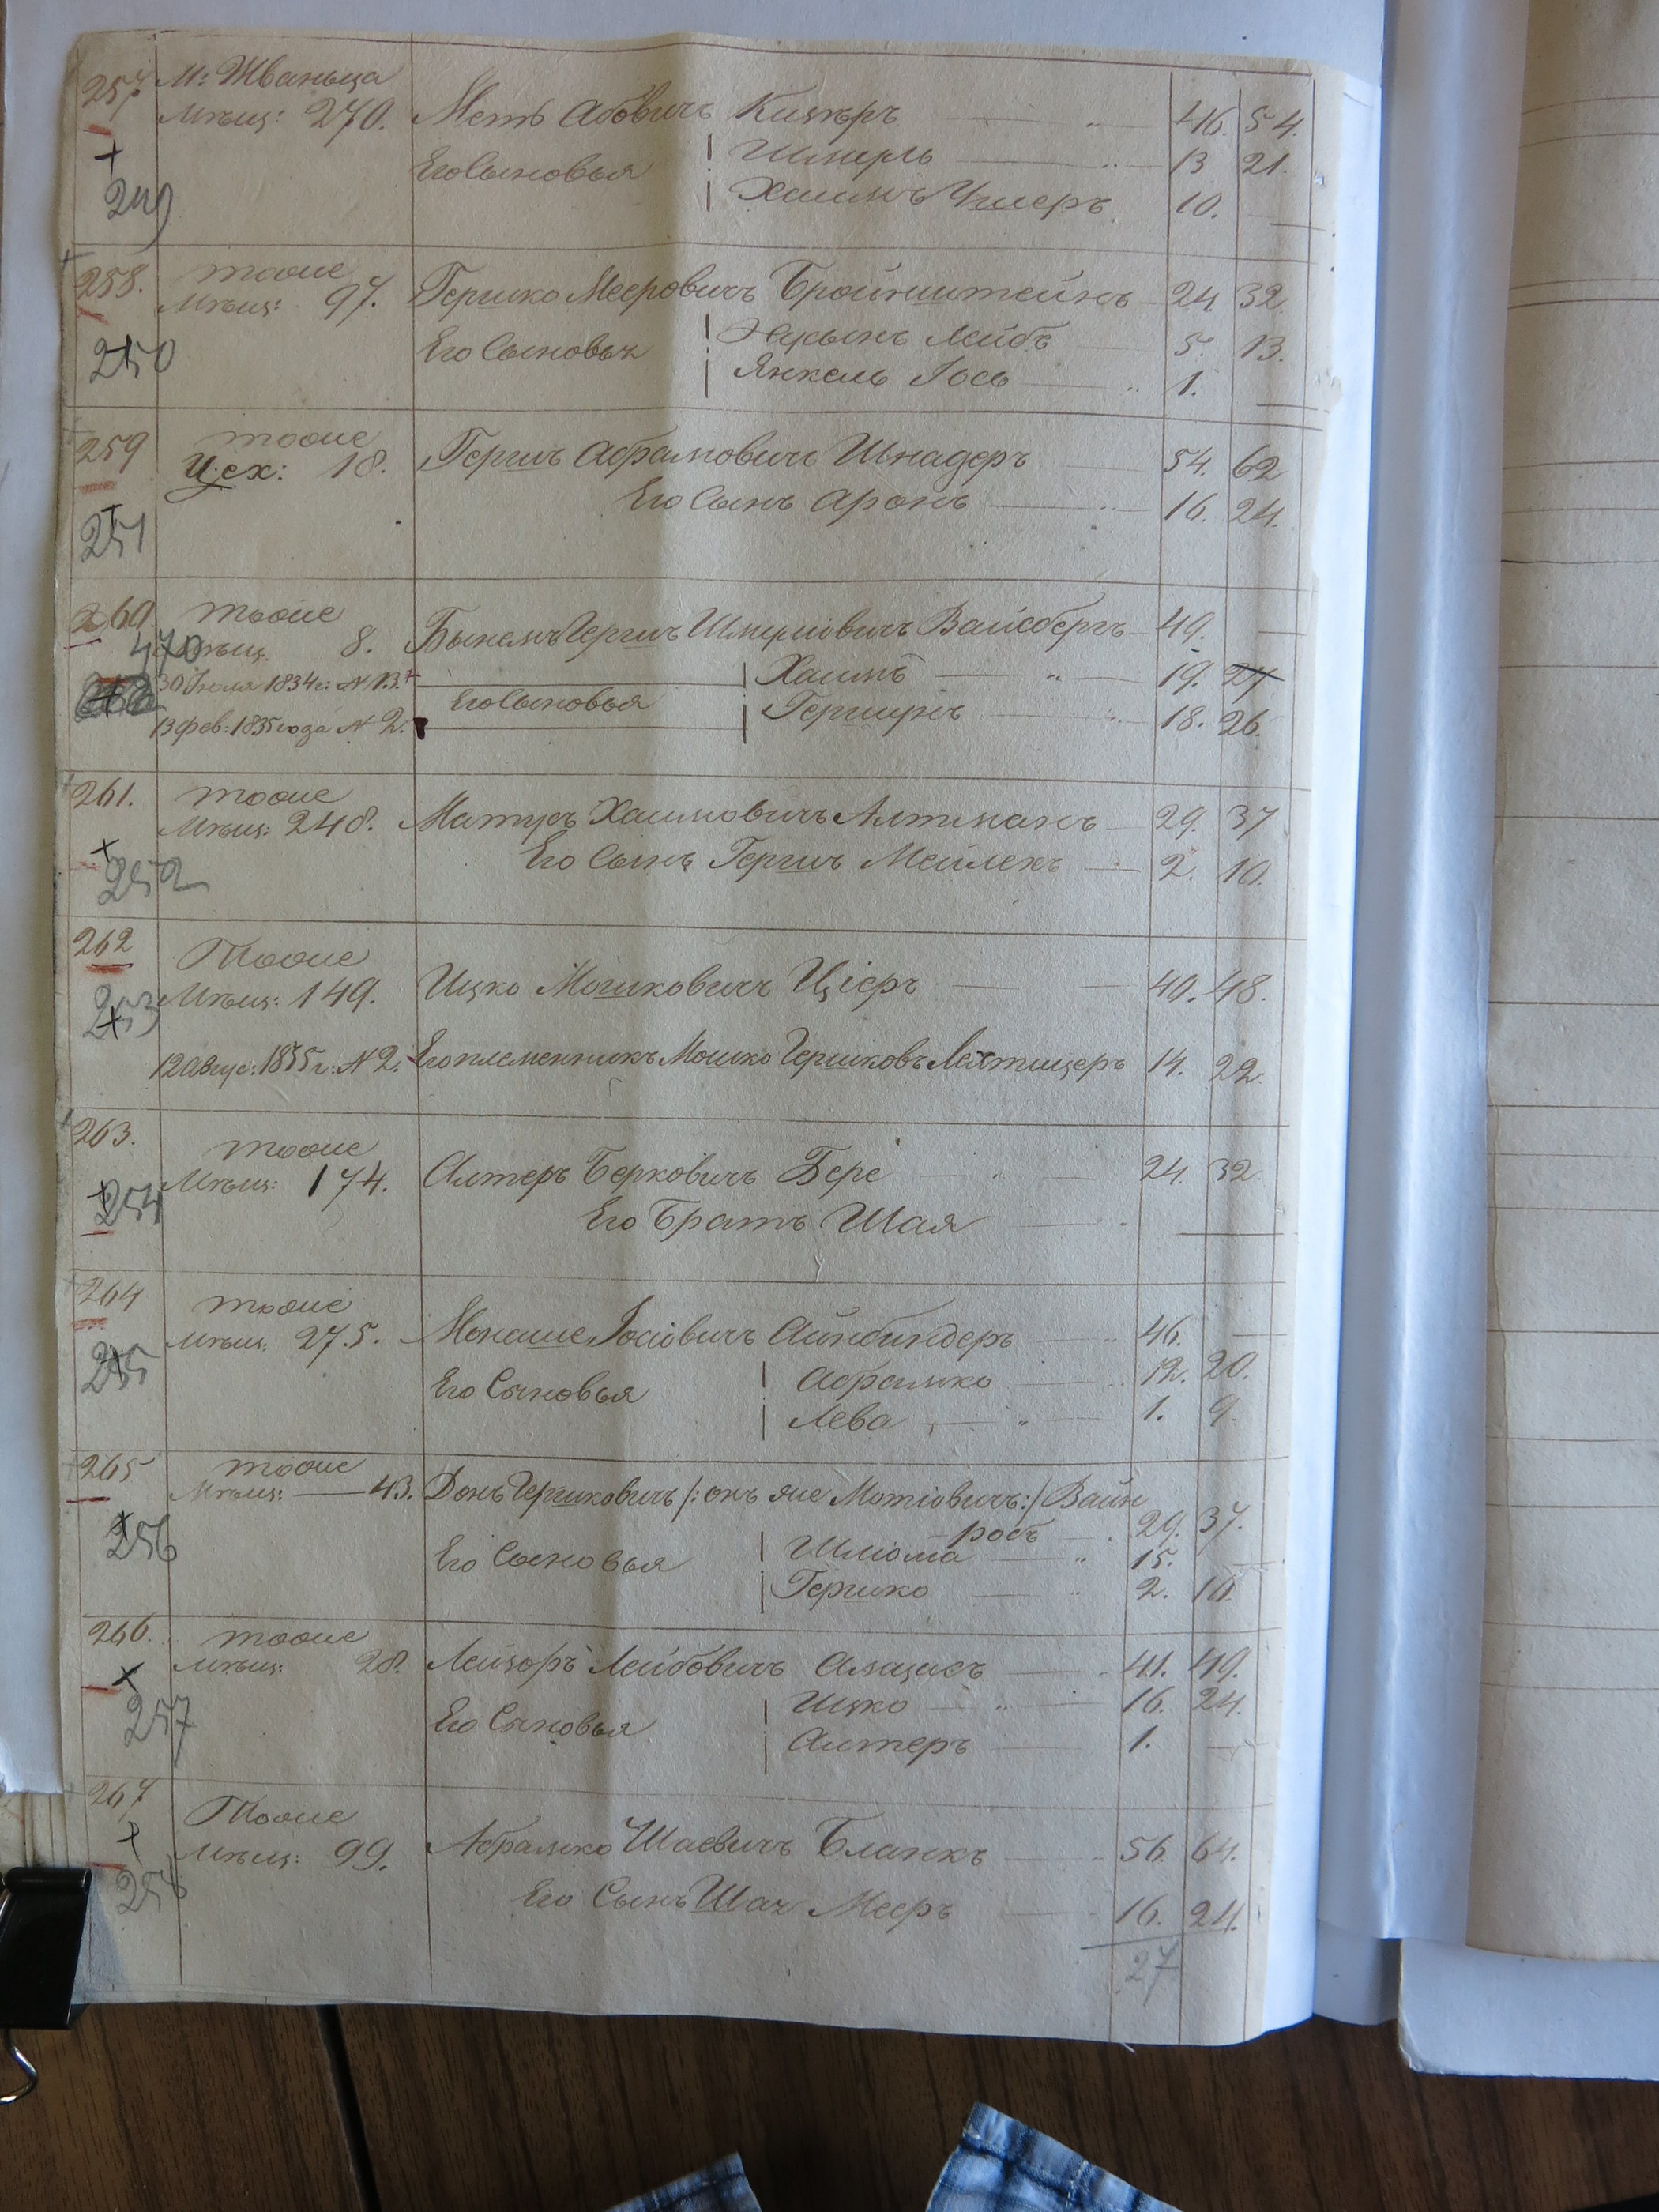 257. М: Жваньца
Мѣщ: 270. Меть Абовичъ Кизнѣръ 46. 54.
Его Сыновья Шмерль 13 21.
249 Хаимъ Умеръ 10.
258. тоже
Мѣщ: 97. Гершко Мееровичъ Бройнштейнъ 24. 32.
Его Сыновья Нусынъ Лейбъ 5. 13.
250 Янкель Іось 1.
259 тоже
Цех: 18. Гершъ Абрамовичъ Шнадеръ 54. 62
Его Сынъ Аронъ 16. 24.
251
260. тоже
470 Мѣщ. 8. Гершъ Шмулiовичъ Вайсбергъ 49.
30 Іюля 1834 г: N 13. Хаимъ 19. 27
Его Сыновья
13 фев: 1835 года N 2. Гершунъ 18. 26.
261. тоже
Мѣщ: 248. Хаимовичъ Алтманъ 29. 37
Его Сынъ Гершъ Мейлехъ 2. 10.
252
262 Тоже
253 Мѣщ: 149. Ицко Мошковичъ Ціеръ 40. 48.
12 Авгус: 1835 г: N 2. Его племенникъ Мошко Гершковъ Лехтицеръ 14. 22.
263. тоже
254 Мѣщ: 174. Алтеръ Берковичъ Бере 24. 32.
Его Братъ Шая
264 тоже
Мѣщ: 275. Монаше Іосіовичъ Айнбиндеръ 46.
255 Абрамко 12. 20.
Его Сыновья
Лева 1. 9.
265 тоже
Мѣщ: 43. Донъ Гершковичъ /: онъ же Мотіовичъ :/ Вайн
робъ 29. 37.
256 Его Сыновья Шліома 15.
Гершко 2. 10.
266. тоже
Мѣщ: 28. Лейзоръ Лейбовичъ 41. 49.
Ицко 16. 24.
257 Его Сыновья
Алтеръ 1.
267 Тоже
Мѣщ: 99. Абрамко Шаевичъ Бланкъ 56. 64.
258 Его Сынъ Шая Мееръ 16. 24.
27